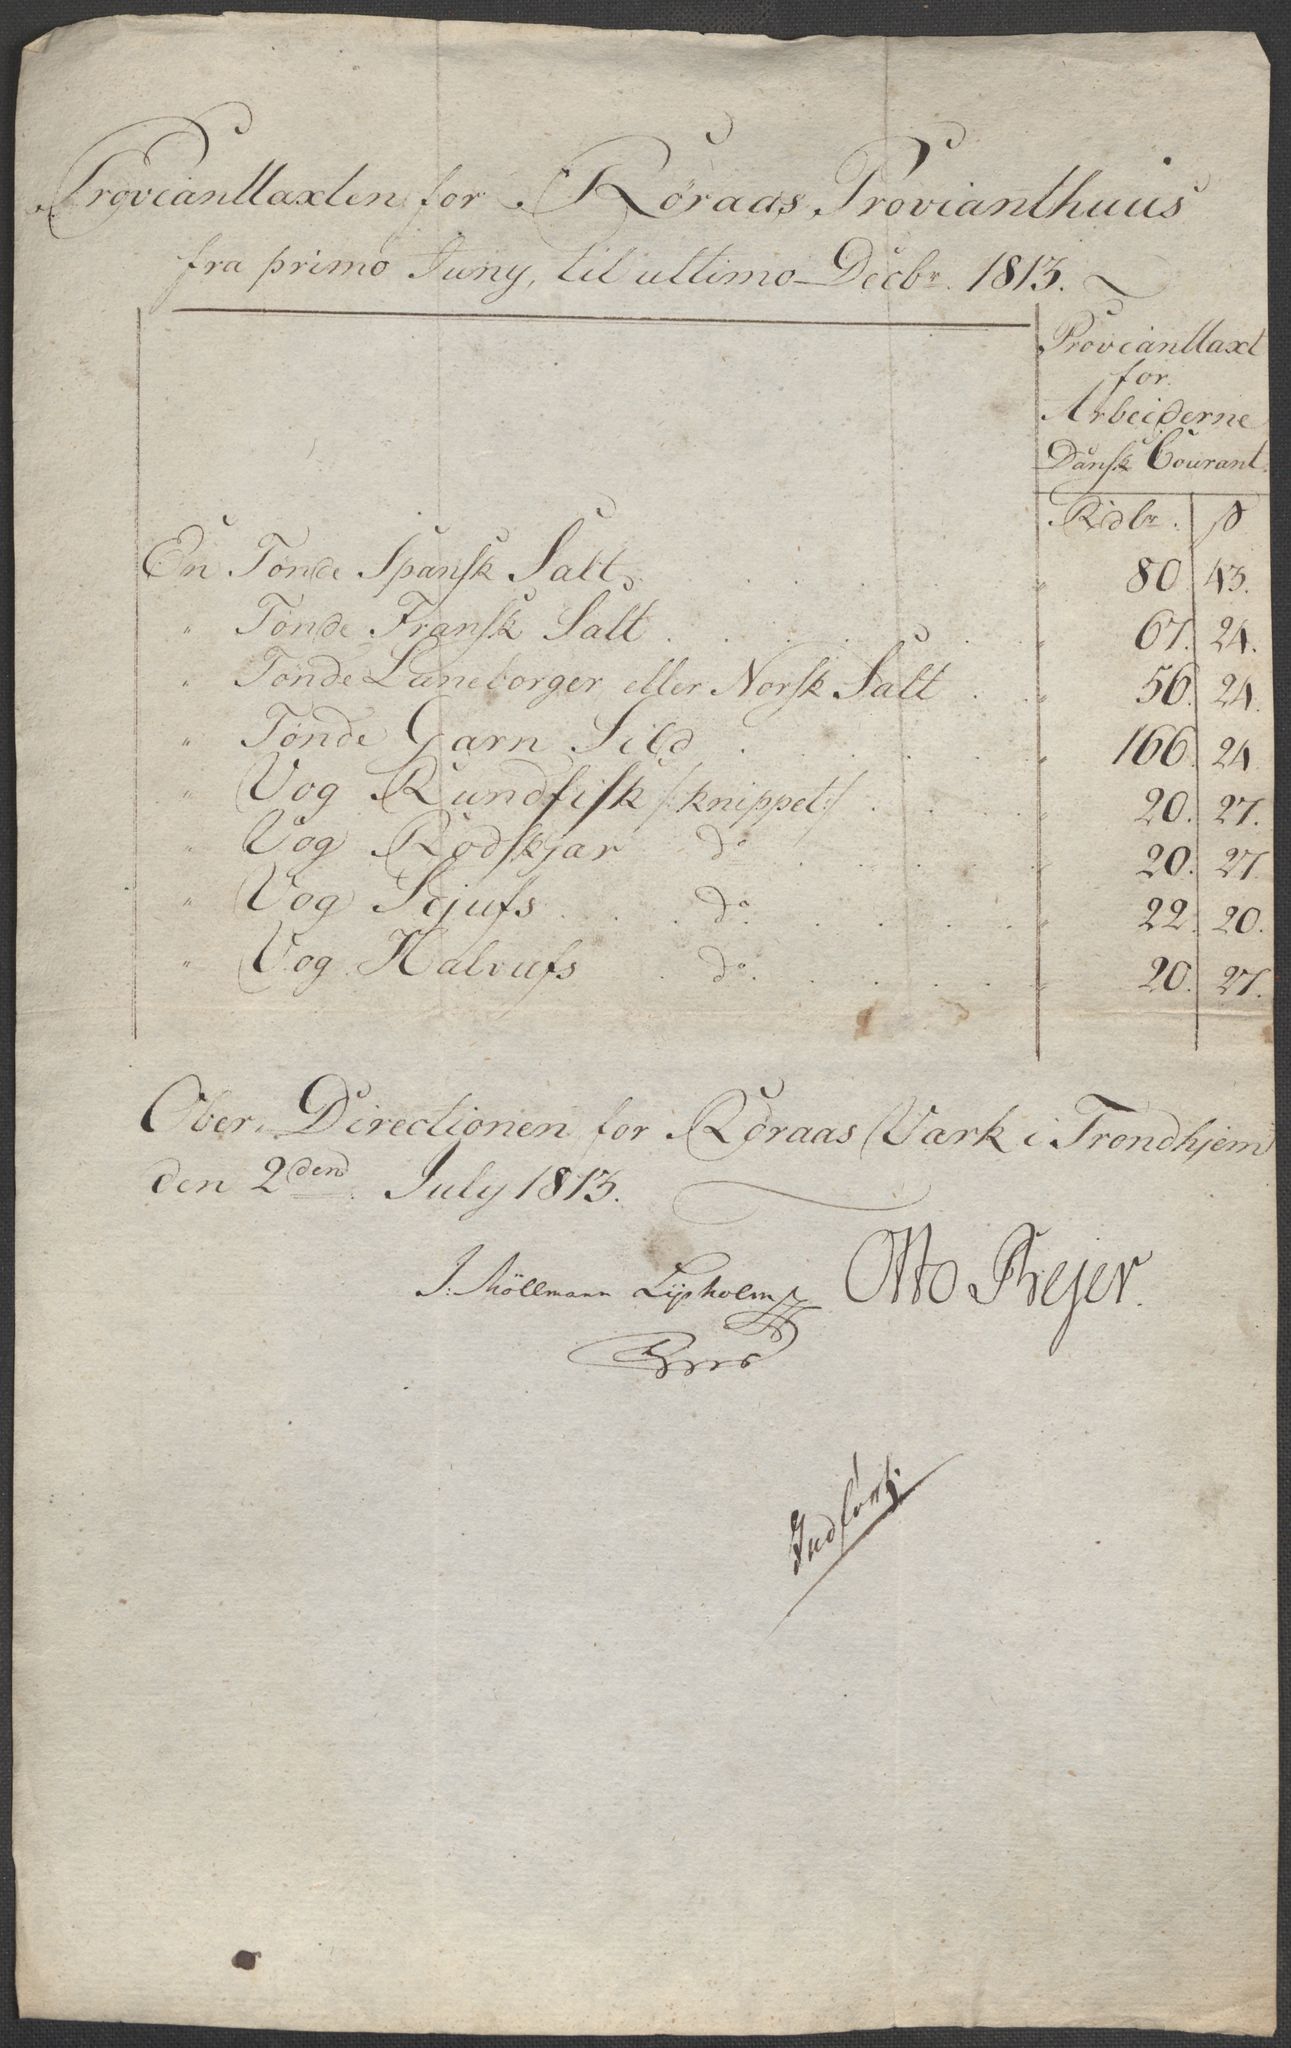 Provianttaxten for Röraas Provianthuus
fra primo Juny, til ultimo Decbr. 1813.
Provianttaxt
for
Arbeiderne
Dansk Courant.
Rdbr. ß
En Tønde Spansk Salt 80. 43.
" Tønde Fransk Salt 67. 24.
" Tønde Luneborger eller Norsk Salt 56. 24.
" Tønde Garn Sild 166. 24
" Vog Rundfisk /:knippet:/ 20. 27.
" Vog Rodskjær do 20. 27
" Vog Sejufs do 22. 20.
" Vog Halvufs do 20. 27.
Ober Directionen for Röraas Værk i Trondhjem
den 2den July 1813.
J: Möllmann Lysholm Otto Frejer.
Indført